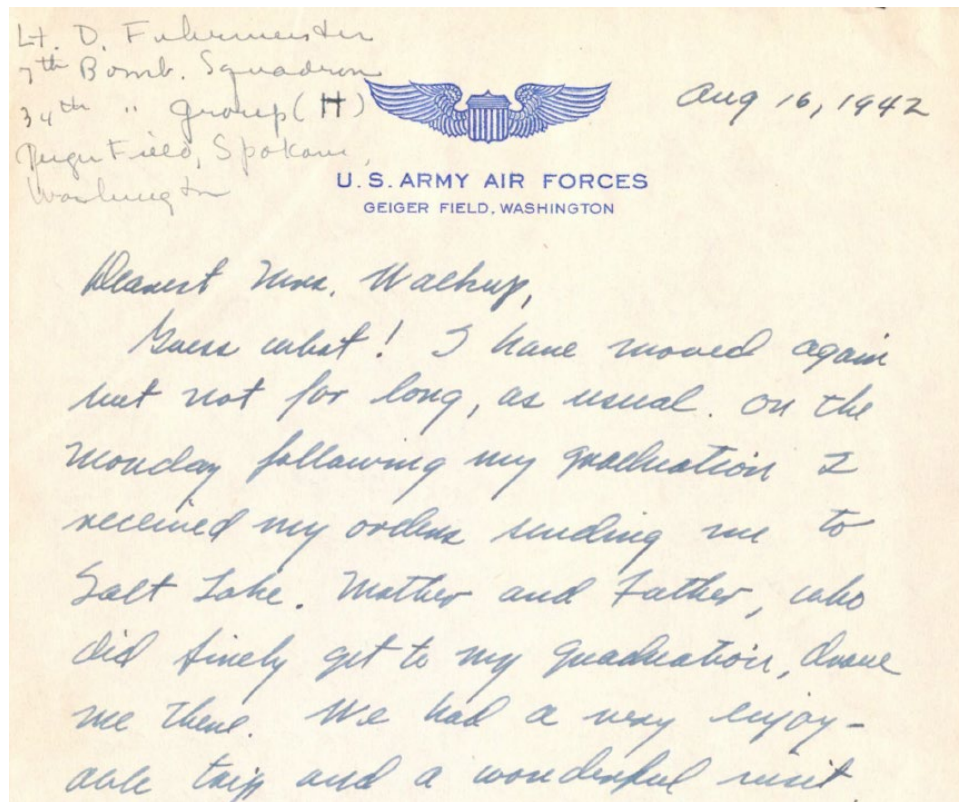 Lt. D. Fuhrmeister
7th Bomb. Squadron
34th " Group (H)
Geiger Field, Spokane,
Washington
Aug 16, 1942
U. S. ARMY AIR FORCES
GEIGER FIELD, WASHINGTON
Dearest Mrs. Walkup,
Guess what! I have moved again
but not for long, as usual. On the
Monday following my graduation I
received my orders sending me to
Salt Lake. Mother and Father, who
did finely get to my graduation, drove
me there. We had a very enjoy-
able trip and a wonderful visit.